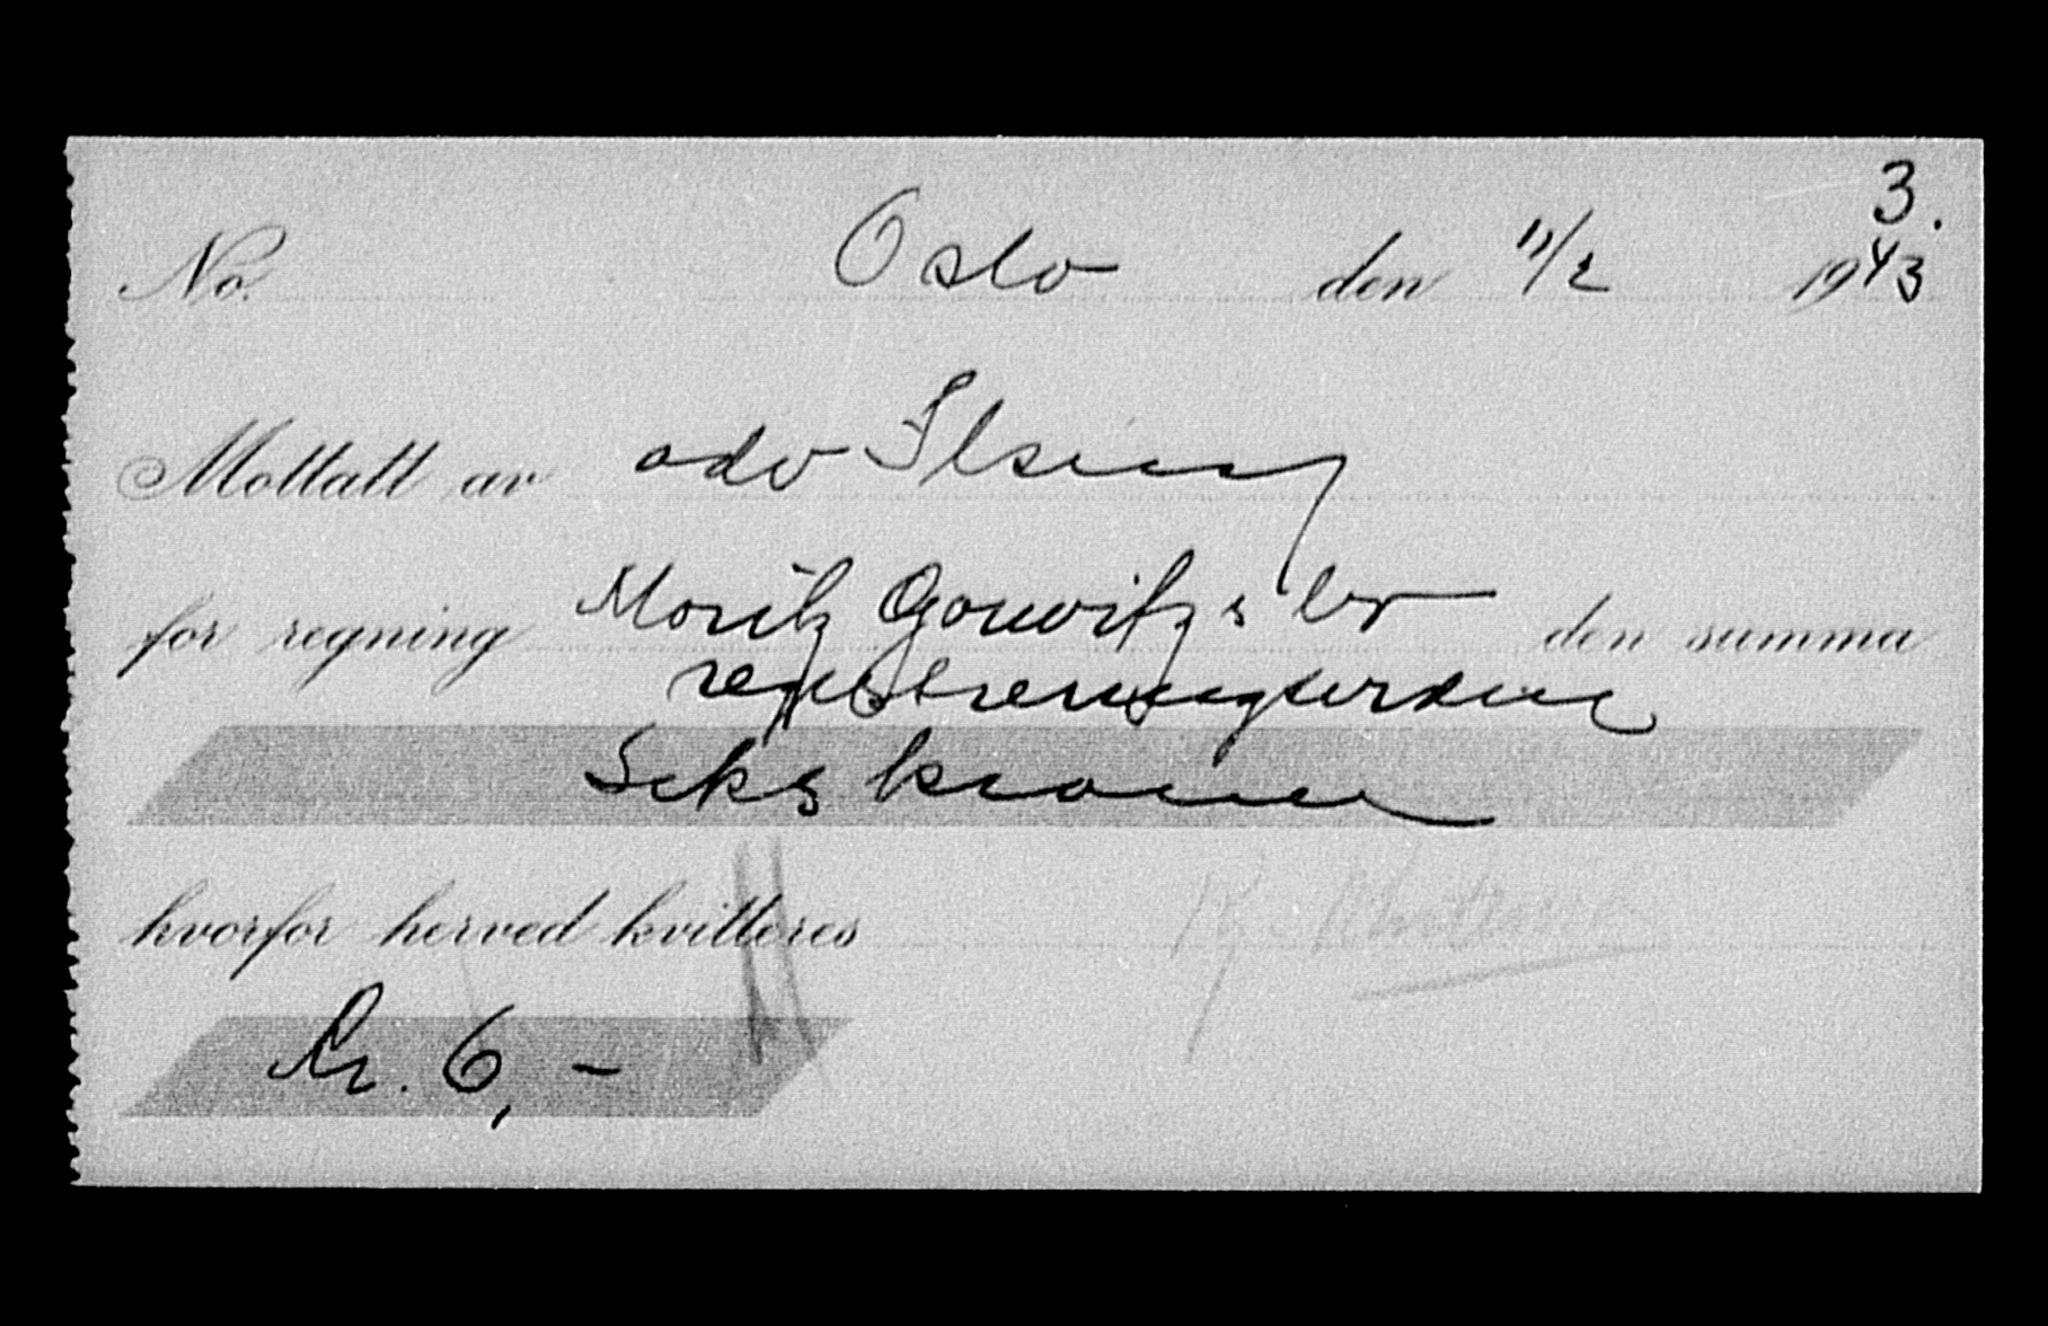 3.
No. Oslo den 11/2 1943
Mottatt av adv
for regning Moritz Gorwitz's bo den summa
Seks kroner
hvorfor herved kvitteres
kr. 6,-